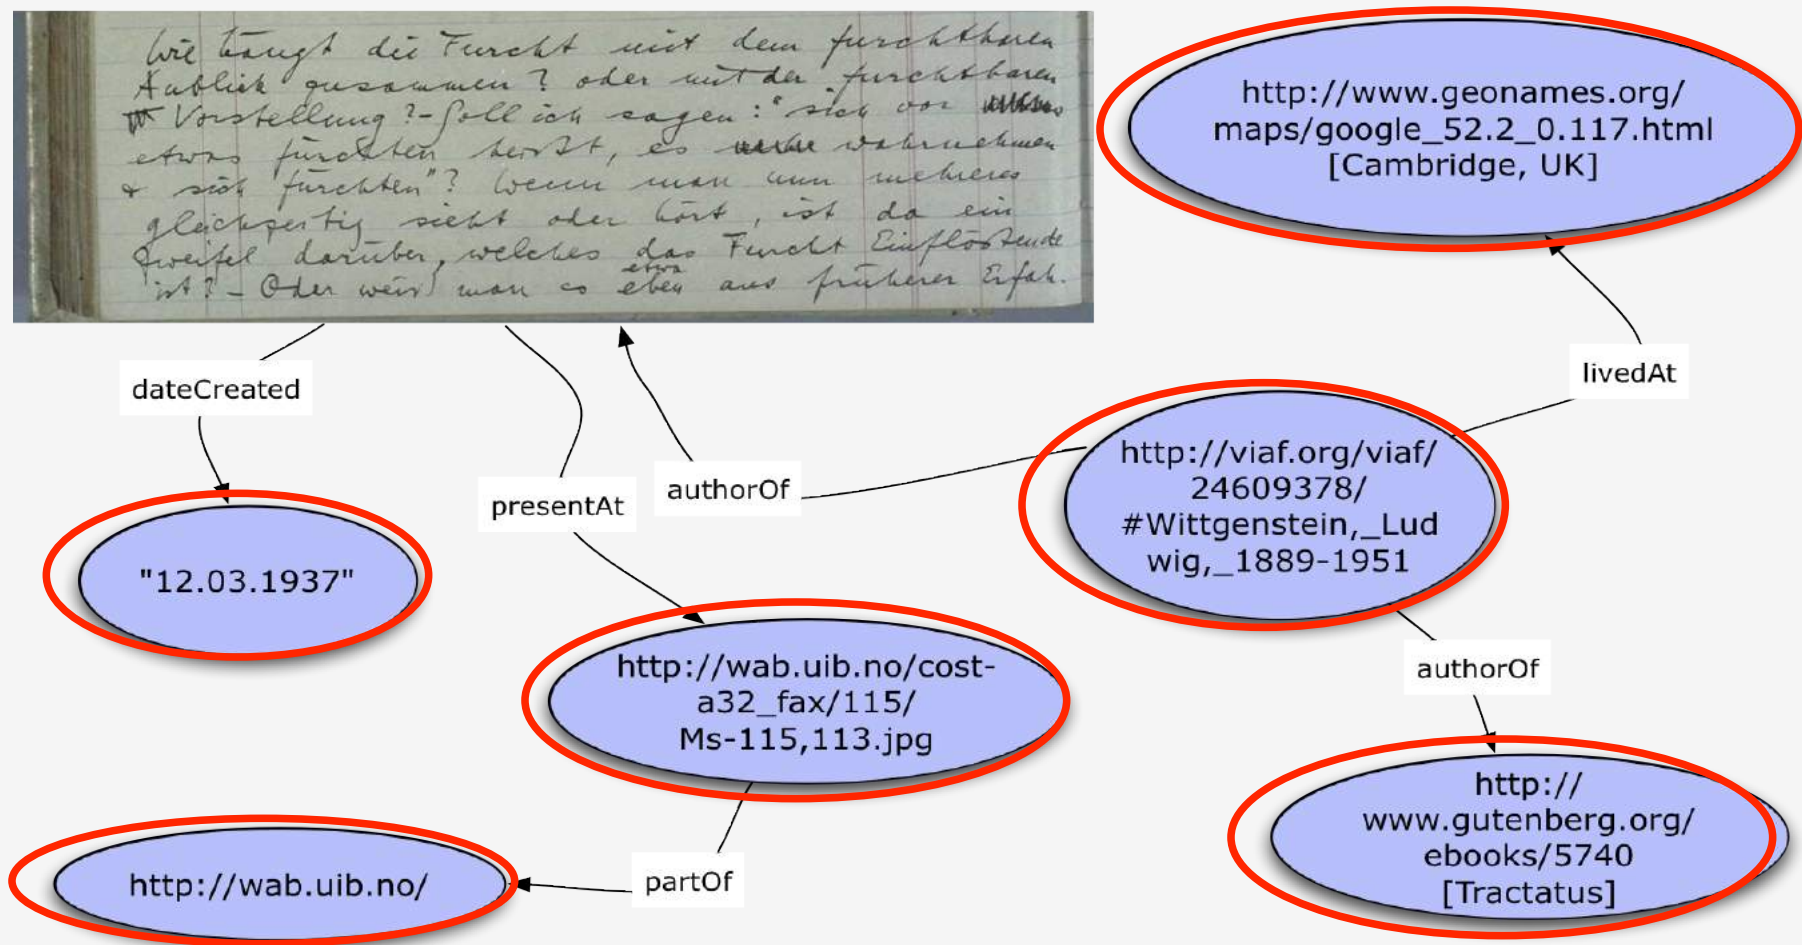 Wie hängt die Furcht mit dem furchtbaren
Anblick zusammen? oder mit der furchtbaren
Vorstellung? – Soll ich sagen: "sich vor
etwas fürchten heißt, es wahrnehmen
& sich fürchten"? Wenn man nun mehreres
gleichzeitig sieht oder hört, ist da ein
Zweifel darüber, welches das Furcht Einflößende
ist? – Oder weiß man es eben etwa aus früherer Erfah-
http://www.geonames.org/
maps/google_52.2_0.117.html
[Cambridge, UK]
dateCreated
livedAt
presentAt
authorOf
http://viaf.org/viaf/
24609378/
#Wittgenstein,_Lud
wig,_1889-1951
"12.03.1937"
http://wab.uib.no/cost-
a32_fax/115/
Ms-115,113.jpg
authorOf
http://
www.gutenberg.org/
ebooks/5740
[Tractatus]
http://wab.uib.no/
partOf